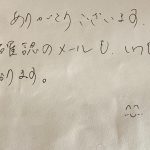 ありがとうございます.
確認のメールも、いつ
ります。